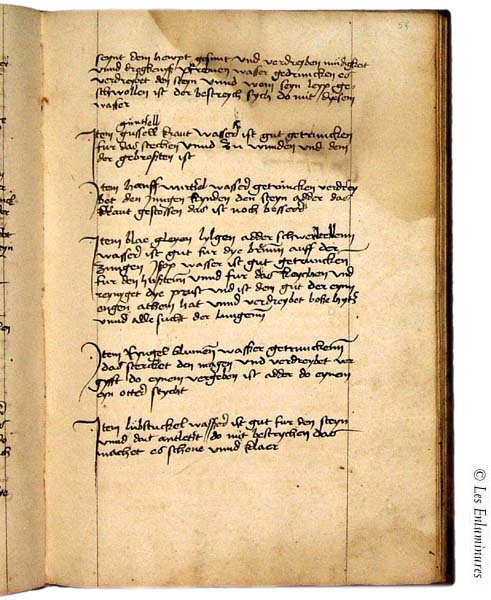 54
seynt dem hewpt gesunt und verdreyben mudigkeit
unnd wasser getruncken es
verdreybet den steyn unnd wem seyn leyp ge=
schwollen ist der bestreych sych do mit diesem
wasser
gunsell
Item gunsell kraut wasser ist gut getruncken
fur das stechen unnd zu wunden und dem
der gebrosten ist
Item hanff wurtzel wasser getruncken verdrey
bet den jungen kynden den steyn adder das
kraut gestossen das ist noch besser
Item blae gleyen lylgen adder schwertellenn
wasser ist gut fur dye breunn auff der
zungen Isop wasser ist gut getruncken
fur den hustenn unnd fur das keychen und
reyniget dye prust und ist dem gut der eyn
engen athem hat unnd verdreybet boße hytz
unnd alle sucht der lungenn
Item Ryngel blumen wasser getrunckenn
das stercket den magen und verdreybet ver
gyfft do eynem vergeben ist adder do eynen
eyn otter stycht
Item lubstuckel wasser ist gut fur den steyn
unnd dat antletz do mit bestrychen das
machet es schone unnd klaer
© Les Enluminures